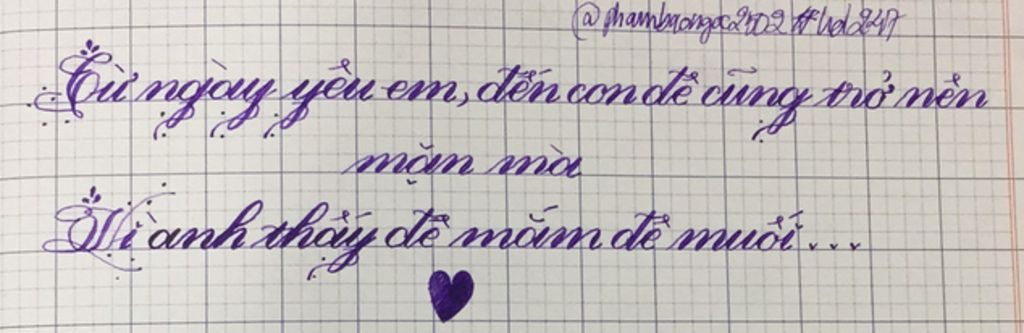 @phambaongoc2502 #hd247
Từ ngày yêu em, đến con đê cũng trở nên
mặn mà
Vì anh thấy đê mắm đê muối...